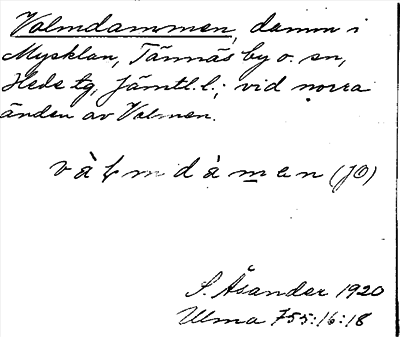 Valmdammen, damm i
Mysklan, Tännäs by o. sn,
Hede tg, Jämtl. l.; vid norra
änden av Valmen.
vàɫmdàmen (JO)
S. Åsander 1920
Ulma 755:16:18